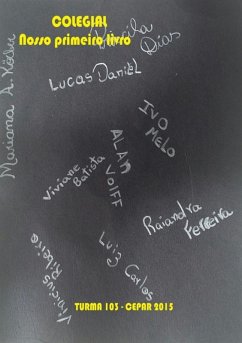 COLEGIAL
Nosso primeiro livro
Dias
Mariana A.
Lucas Daniel
IVO
MELO
ALAN
VOIFF
Viviane
Batista
Raiandra
Ferreira
Luiz Carlos
Vinicius Ribeiro
TURMA 103 - CEPAR 2015